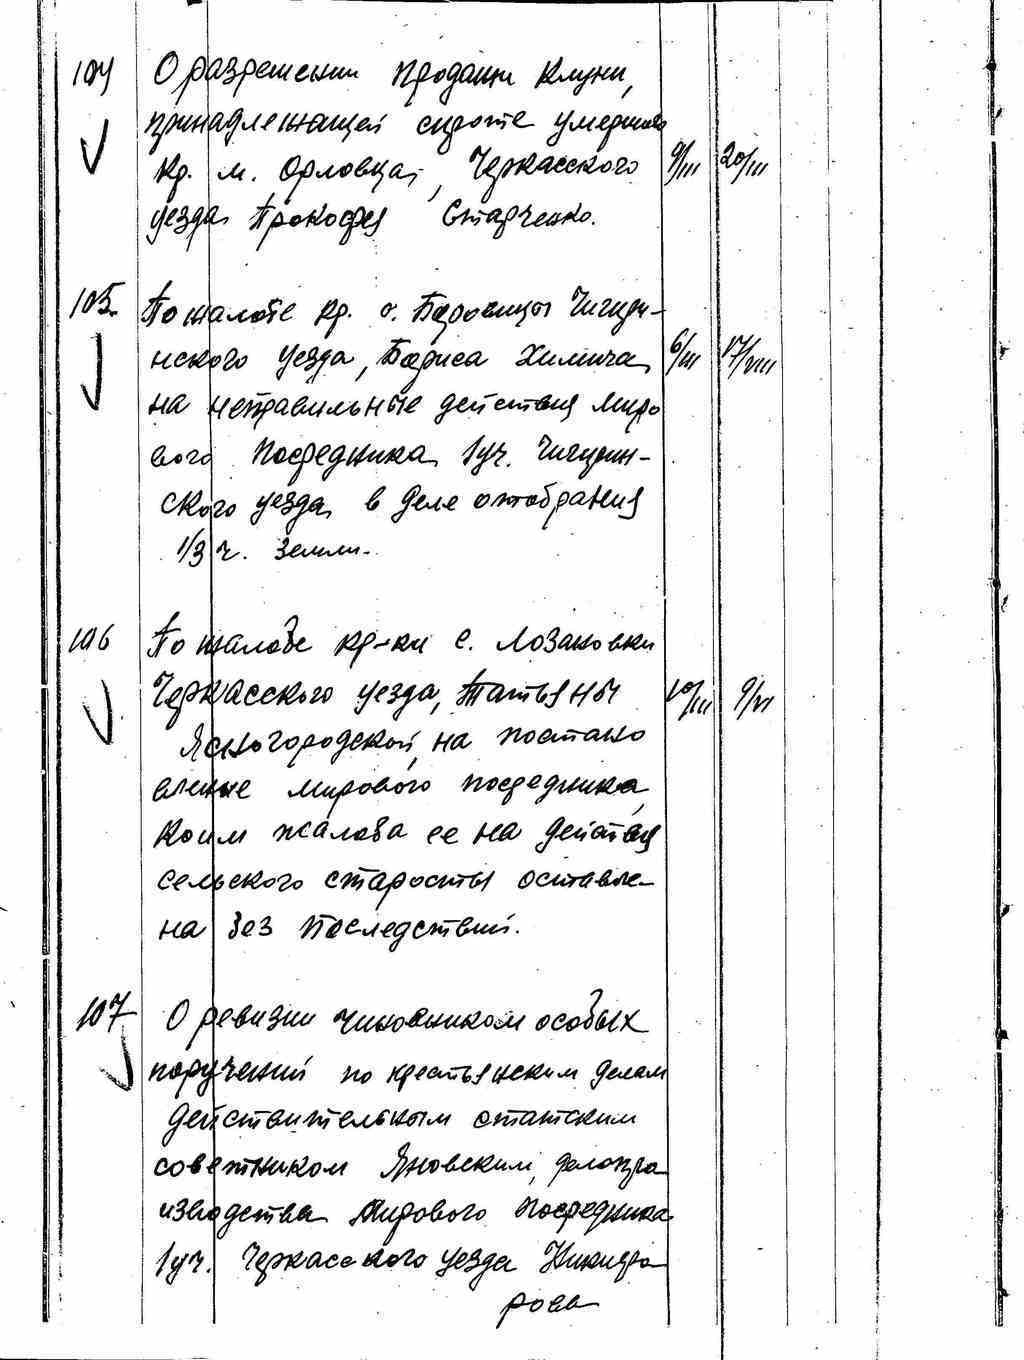 104 О разрешении продажи клуни,
принадлежащей сироте умершего
кр. м. Орловца, Черкасского 9/III 20/III
уезда Прокофия Старченко.
105. По жалобе кр. с. Боровицы Чигири-
нского уезда, Бориса Химича 6/III 17/VIII
на неправильные действия миро
вого посредника 1 уч. Чигирин-
ского уезда в деле отобрания
1/3 ч. земли.
106 По жалобе кр-ки с. Лозановки
Черкасского уезда, Татьяны 10/III 9/VI
Ясногородской, на постано
вление мирового посредника,
коим жалоба ее на действия
сельского старосты оставле-
на без последствий.
107 О ревизии чиновником особых
поручений по крестьянским делам
действительным статским
советником Яновским, делопро
изводства Мирового Посредника
1 уч. Черкасского уезда Никифо
рова